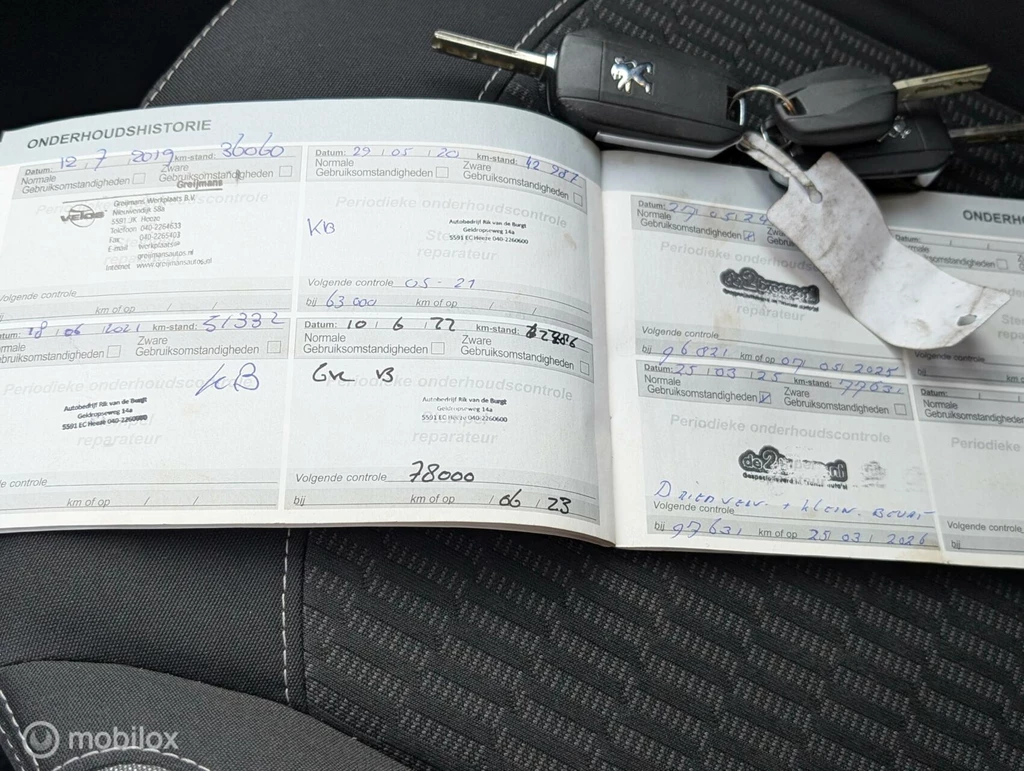 ONDERHOUDSHISTORIE
Datum: 12 / 7 / 2019 km-stand: 36060
Normale Gebruiksomstandigheden
Zware Gebruiksomstandigheden
Greijmans
VELOS
Greijmans Werkplaats B.V.
Nieuwendijk 58a
5591 JK Heeze
Telefoon 040-2264633
Fax 040-2265403
E-mail werkplaats@
greijmansautos.nl
Internet www.greijmansautos.nl
Volgende controle
km of op / /
Datum: 29 / 05 / 20 km-stand:
Normale Gebruiksomstandigheden
Zware Gebruiksomstandigheden
Periodieke onderhoudscontrole
KB
Autobedrijf Rik van de Burgt
Geldropseweg 14a
5591 EC Heeze 040-2260600
reparateur
Volgende controle 05-21
bij 63000 km of op / /
18 / 06 / 2021 km-stand: 51332
Gebruiksomstandigheden
Zware Gebruiksomstandigheden
Periodieke onderhoudscontrole
KB
Autobedrijf Rik van de Burgt
Geldropseweg 14a
5591 EC Heeze 040-2260600
reparateur
controle
km of op / /
Datum: 10 / 6 / 22 km-stand:
Normale Gebruiksomstandigheden
Zware Gebruiksomstandigheden
Periodieke onderhoudscontrole
VB
Autobedrijf Rik van de Burgt
Geldropseweg 14a
5591 EC Heeze 040-2260600
reparateur
Volgende controle 78000
bij km of op / 06 / 23
ONDERHO
Datum:
Normale Gebruiksomstandigheden
Periodieke onderhoudsc
reparateur
Volgende controle
bij 96821 km of op 07 / 05 / 2025
Datum: 25 / 03 / 25 km-stand: 77631
Normale Gebruiksomstandigheden
Zware Gebruiksomstandigheden
Periodieke onderhoudscontrole
reparateur
+ klein beurt
Volgende controle
bij 97631 km of op 25 / 03 / 2026
Gebruiksomstandigheden
Volgende controle
bij
Datum: / /
Normale Gebruiksomstandigheden
Periodieke
Volgende controle
bij
mobilox